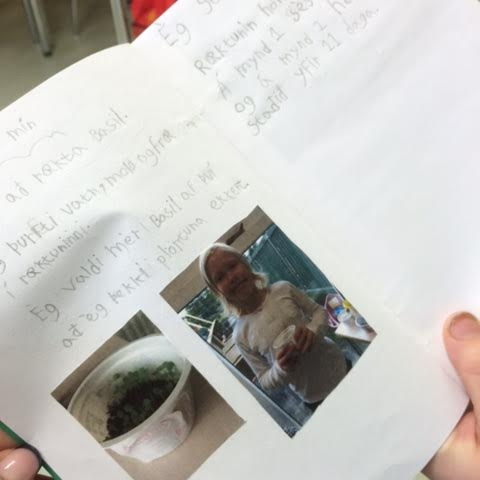 mín
að rækta Basil.
þurfti vatn, mold og fræ
í ræktuninni.
Ég valdi mér Basil af því
að ég þekkti plöntuna ekkert.
Ég
Ræktunin
Á mynd 1 sés
og á mynd 2 ha
staðið yfir 21 daga.